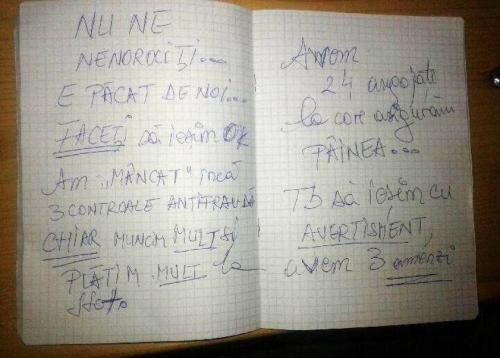 NU NE
NENOROCIȚI...
E PĂCAT DE NOI...
FACEȚI să ieșim OK
Am „MÂNCAT" încă
3 CONTROALE ANTIFRAUDĂ
CHIAR MUNCIM MULT și
PLĂTIM MULT la
stat
Avem
24 angajate
la care asigurăm
PÂINEA...
TB să ieșim cu
AVERTISMENT,
avem 3 amenzi